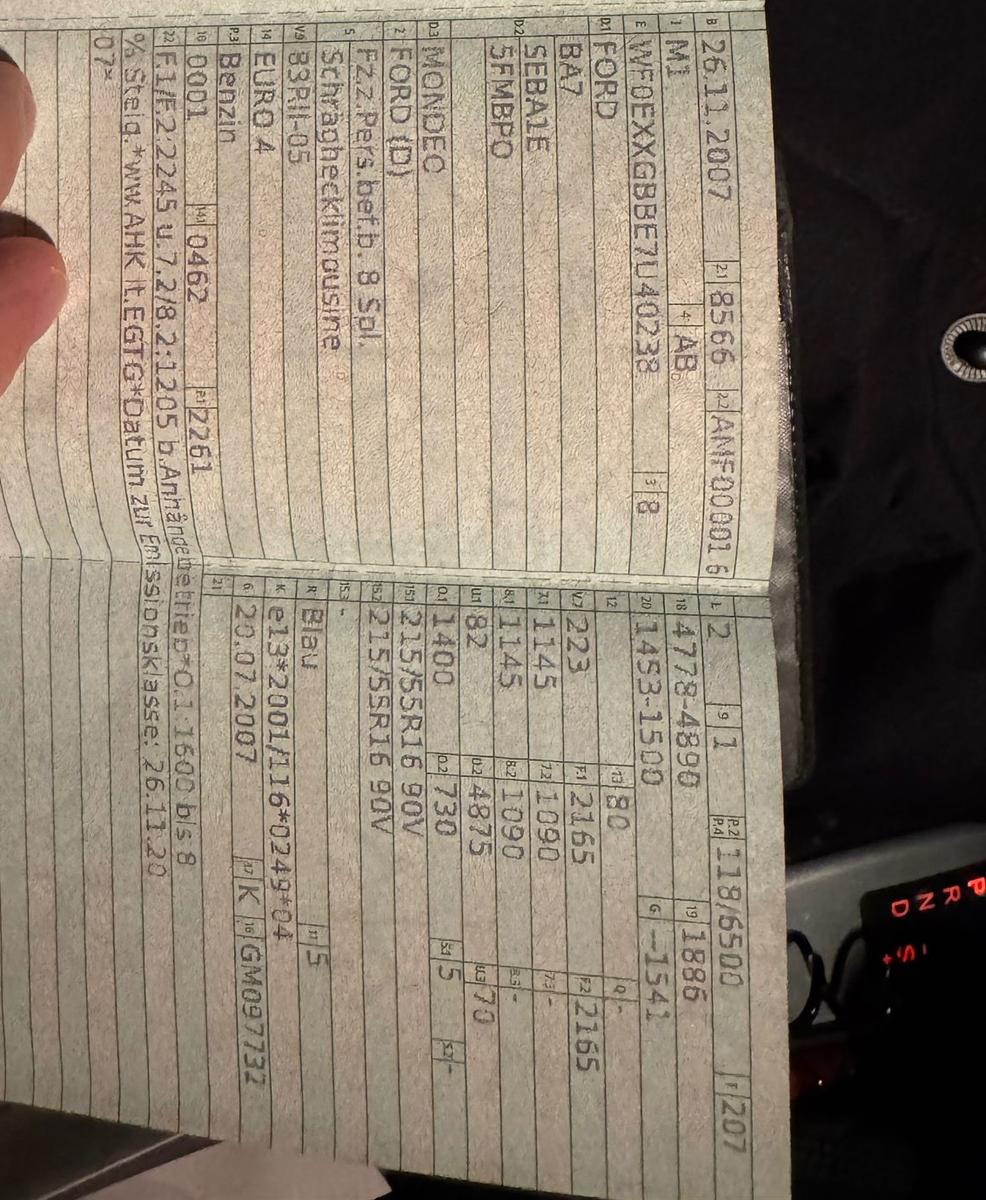 B 26.11.2007 2.1 8566 2.2 AMF00001 6
J M1 4 AB
E WF0EXXGBBE7U40238 3 8
D.1 FORD
BA7
D.2 SEBA1E
5FMBPO
D.3 MONDEO
2 FORD (D)
5 Fz.z.Pers.bef.b. 8 Spl.
Schräghecklimousine
V.9 83RII-05
14 EURO 4
P.3 Benzin
10 0001 14.1 0462 P.1 2261
L 2 9 1 P.2 P.4 118/6500 T 207
18 4778-4890 19 1886
20 1453-1500 G --1541
12 13 80 Q -
V.7 223 F.1 2165 F.2 2165
7.1 1145 7.2 1090 7.3 -
8.1 1145 8.2 1090 8.3 -
U.1 82 U.2 4875 U.3 70
O.1 1400 O.2 730 S.1 5 S.2 -
15.1 215/55R16 90V
15.2 215/55R16 90V
15.3 -
R Blau 11 5
K e13*2001/116*0249*04
6 20.07.2007 17 K 16 GM097732
21
22 F.1/F.2:2245 u.7.2/8.2:1205 b.Anhängebetrieb*O.1:1600 b/s 8
% Steig.*ww.AHK lt.EGTG*Datum zur Emissionsklasse: 26.11.20
07*
P
R
N
D
S
+
-